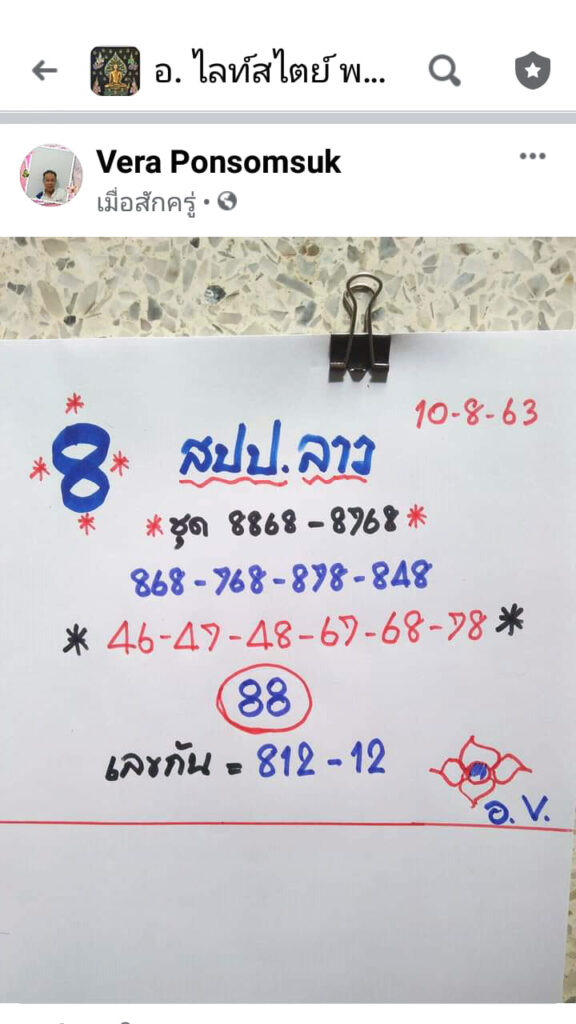 อ. ไลท์สไตย์ พ...
Vera Ponsomsuk
เมื่อสักครู่
10-8-63
8
สปป. ลาว
*ชุด 8868 - 8768*
868 - 768 - 878 - 848
* 46 - 47 - 48 - 67 - 68 - 78 *
88
เลขกัน = 812 - 12
อ. V.